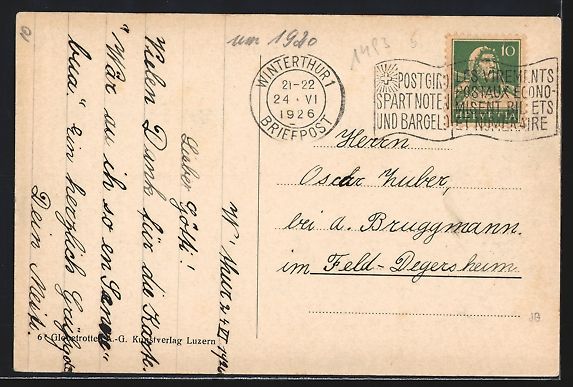 um 1920
1483 5
WINTERTHUR 1
21-22
24·VI
1926
BRIEFPOST
POSTGIR
SPART NOTE
UND BARGEL
LES VIREMENTS
POSTAUX ECONO-
MISENT BILLETS
ET NUMERAIRE
10
HELVETIA
Herrn
Oscar Zuber,
bei d. Bruggmann.
im Feld-Degersheim.
W'thur 24 VI 1926
Lieber Götti!
Vielen Dank für die Karte.
"Wär au ich so en
bua" Ein herzlich
Dein
Globetrotter A.-G. Kunstverlag Luzern